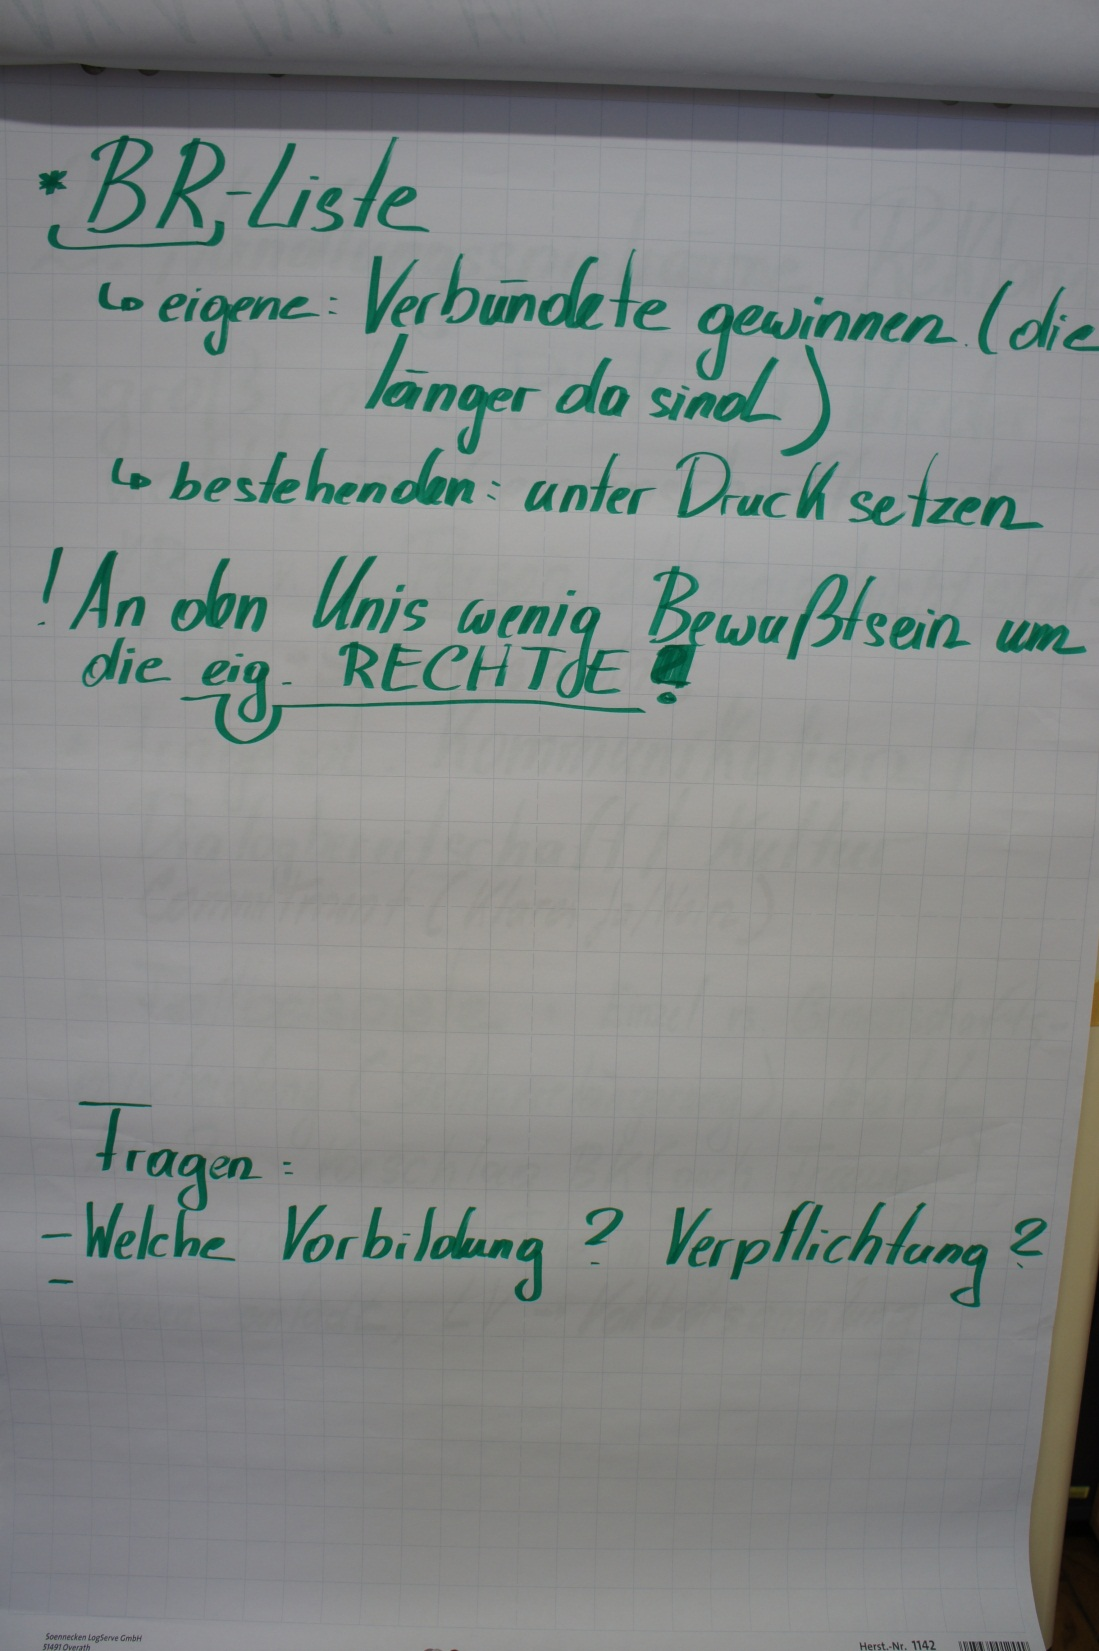 * BR-Liste
↳ eigene: Verbündete gewinnen (die
länger da sind)
↳ bestehenden: unter Druck setzen
! An den Unis wenig Bewußtsein um
die eig. RECHTE !
Fragen:
- Welche Vorbildung? Verpflichtung?
-
Soennecken LogServe GmbH
51491 Overath
Herst.-Nr. 1142